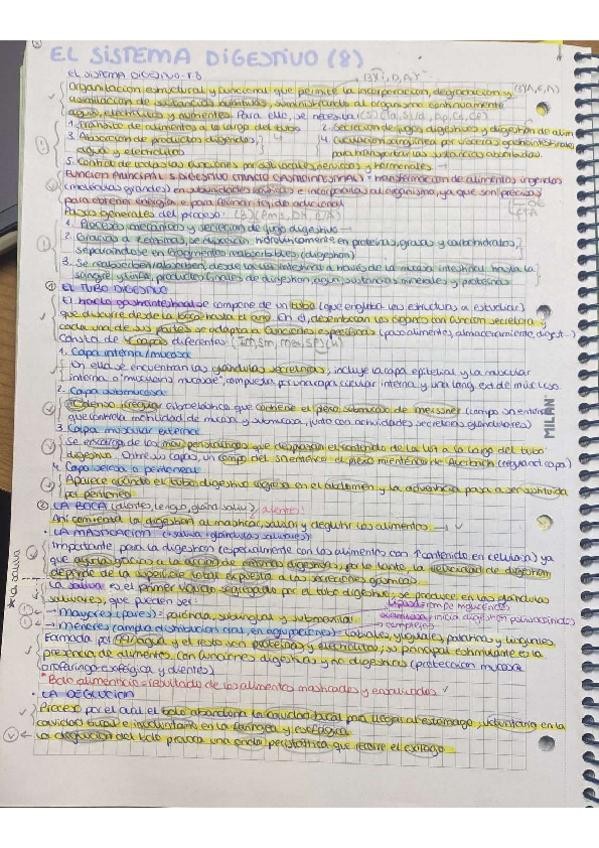 EL SISTEMA DIGESTIVO (8)
EL SISTEMA DIGESTIVO-T.8
Organización estructural y funcional que permite la incorporación, degradación y
asimilación de sustancias nutritivas, suministrando al organismo continuamente
agua, electrolitos y nutrientes. Para ello, se necesita:
1. Tránsito de alimentos a lo largo del tubo
2. Secreción de jugos digestivos y digestión de alim
3. Absorción de productos digeridos, agua y electrolitos
4. Circulación sanguínea por vísceras gastrointestinales para transportar las sustancias absorbidas.
5. Control de todas las funciones por sist. locales, nervioso y hormonales
FUNCIÓN PRINCIPAL S. DIGESTIVO (TRACTO GASTROINTESTINAL) = transformación de alimentos ingeridos
(moléculas grandes) en subunidades básicas e incorporarlas al organismo, ya que son precisas
para obtener energía e para formar tejido adicional
Pasos generales del proceso:
1. Procesos mecánicos y secreción de jugo digestivo
2. Gracias a enzimas, se digieren hidrolíticamente en proteínas, grasas y carbohidratos,
separándose en fragmentos reabsorbibles (digestión)
3. Se reabsorben/absorben, desde la luz intestinal a través de la mucosa intestinal hasta la
sangre y linfa, productos finales de digestión, agua, sustancias minerales y proteínas
EL TUBO DIGESTIVO
El tracto gastrointestinal se compone de un tubo (que engloba las estructuras a estudiar)
que discurre desde la boca hasta el ano. En él, desembocan los órganos con función secretora y
cada una de sus partes se adapta a funciones específicas (paso alimento, almacenamiento, digest...)
Consta de 4 capas diferentes:
1. Capa interna/mucosa
En ella se encuentran las glándulas secretoras, incluye la capa epitelial y la muscular
interna o "muscularis mucosae", compuesta por una capa circular interna y una long. ext de músc liso.
2. Capa submucosa
T. denso irregular fibroelástico que contiene el plexo submucoso de meissner
que controla motilidad de mucosa y submucosa, junto con actividades secretoras glandulares)
3. Capa muscular externa
Se encarga de los mov. peristálticos que desplazan el contenido de la luz a lo largo del tubo
digestivo. Entre sus capas, un comp. del sn entérico: el plexo mientérico de Auerbach
4. Capa serosa o peritoneal
Aparece cuando el tubo digestivo ingresa en el abdomen y la adventicia pasa a ser sustituida
por peritoneo
LA BOCA (dientes, lengua, gland saliv)
Ahí comienza la digestión al masticar, salivar y deglutir los alimentos.
· LA MASTICACIÓN (+saliva +glándulas salivares)
Importante para la digestión (especialmente con los alimentos con ↑ contenido en celulosa) ya
que agiliza gracias a la acción de enzimas digestivas, por lo tanto, la velocidad de digestión
depende de la superficie total expuesta a las secreciones químicas.
* La saliva
La saliva: es el primer líquido segregado por el tubo digestivo, se produce en las glándulas
salivares, que pueden ser:
→ mayores (pares) = parótida, sublingual y submaxilar
→ menores
Formada por agua y el resto son proteínas y electrolitos, su principal estimulante es la
presencia de alimentos, con funciones digestivas y no digestivas (protección mucosa
orofaringo-esofágica y dientes)
*Bolo alimenticio = resultado de los alimentos masticados y ensalivados
· LA DEGLUCIÓN
Proceso por el cual el bolo abandona la cavidad bucal para llegar al estómago, voluntario en la
cavidad bucal e involuntario en la faríngea y esofágica
La deglución del bolo provoca una onda peristáltica que recorre el esófago
MILAN